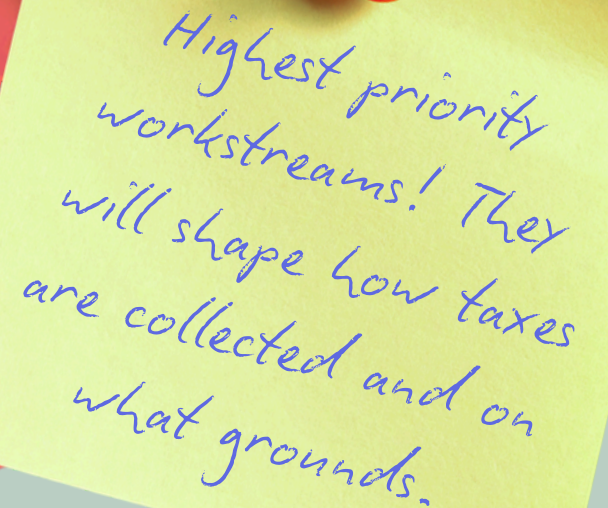 Highest priority
workstreams! They
will shape how taxes
are collected and on
what grounds.